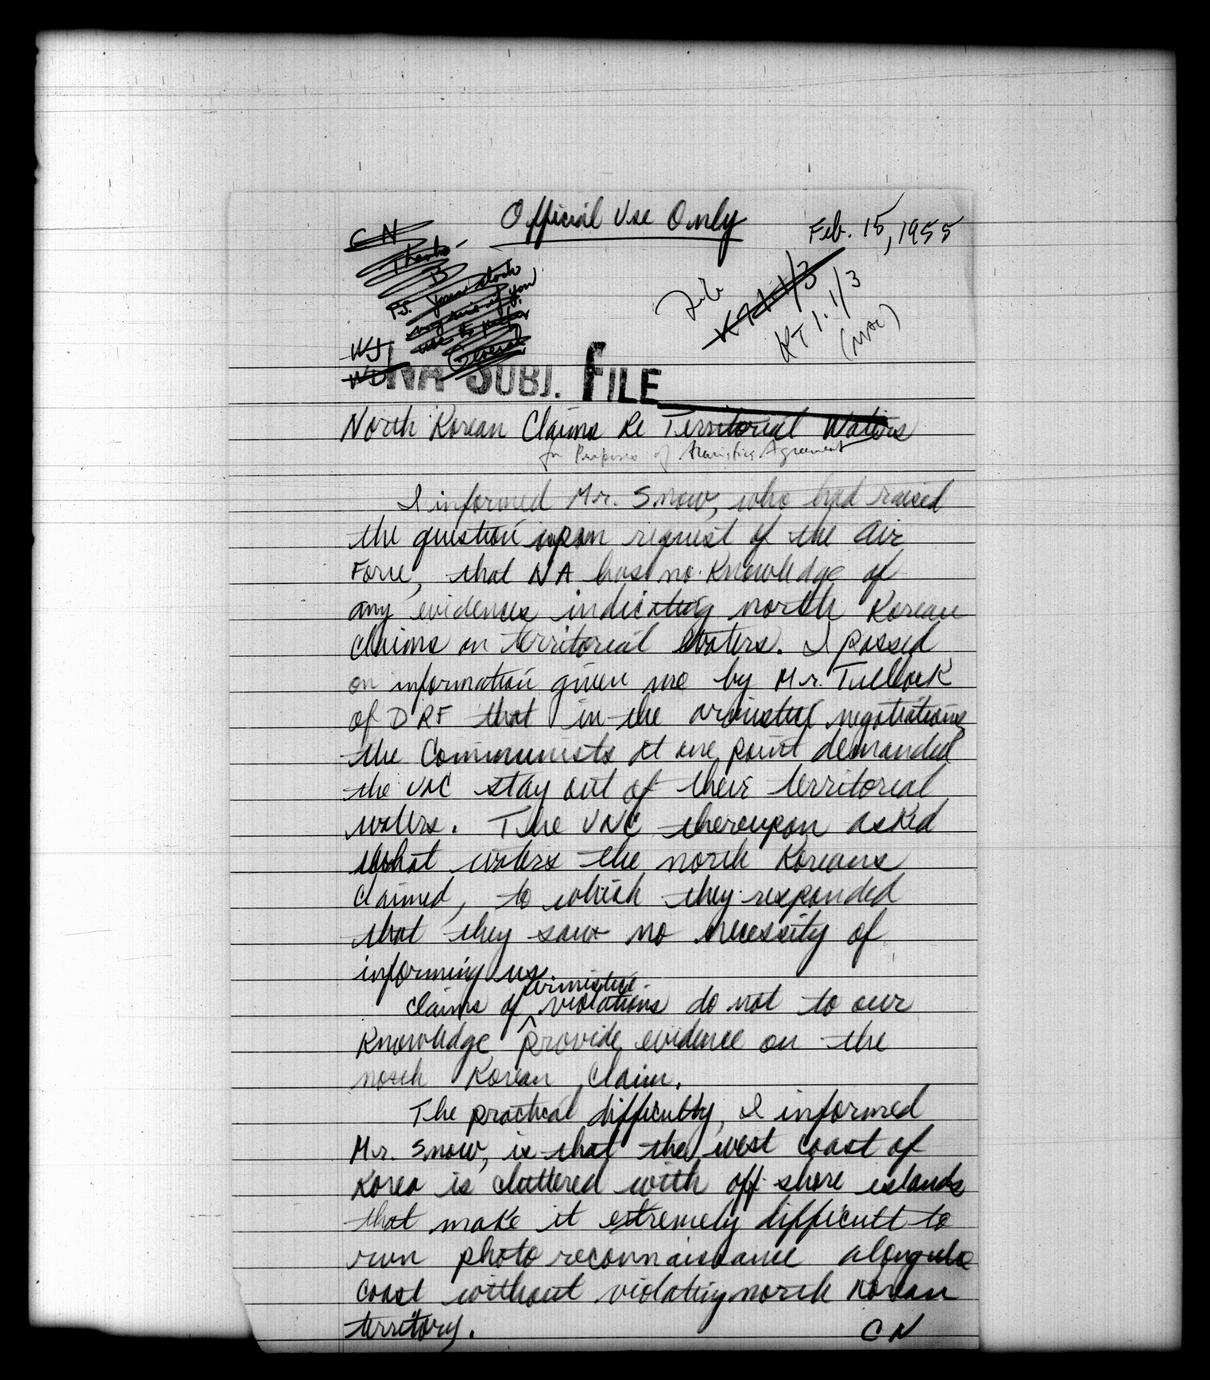 Official Use Only
Feb. 15, 1955
CN
Thanks.
B
P.S.
File
KT 1.1/3
(MAC)
WJ
NA SUBJ. FILE
North Korean Claims Re Territorial Waters
for Purposes of Armistice Agreement
I informed Mr. Snow, who had raised
the question upon request of the Air
Force, that NA has no knowledge of
any evidences indicating north Korean
claims on territorial waters. I passed
on information given me by Mr. Tullock
of DRF that in the armistice negotiations
the Communists at one point demanded
the UNC stay out of their territorial
waters. The UNC thereupon asked
what waters the north Koreans
claimed, to which they responded
that they saw no necessity of
informing us.
Claims of armistice violations do not to our
knowledge provide evidence on the
north Korean claim.
The practical difficulty, I informed
Mr. Snow, is that the west coast of
Korea is cluttered with off shore islands
that make it extremely difficult to
run photo reconnaissance along the
coast without violating north Korean
territory.
CN